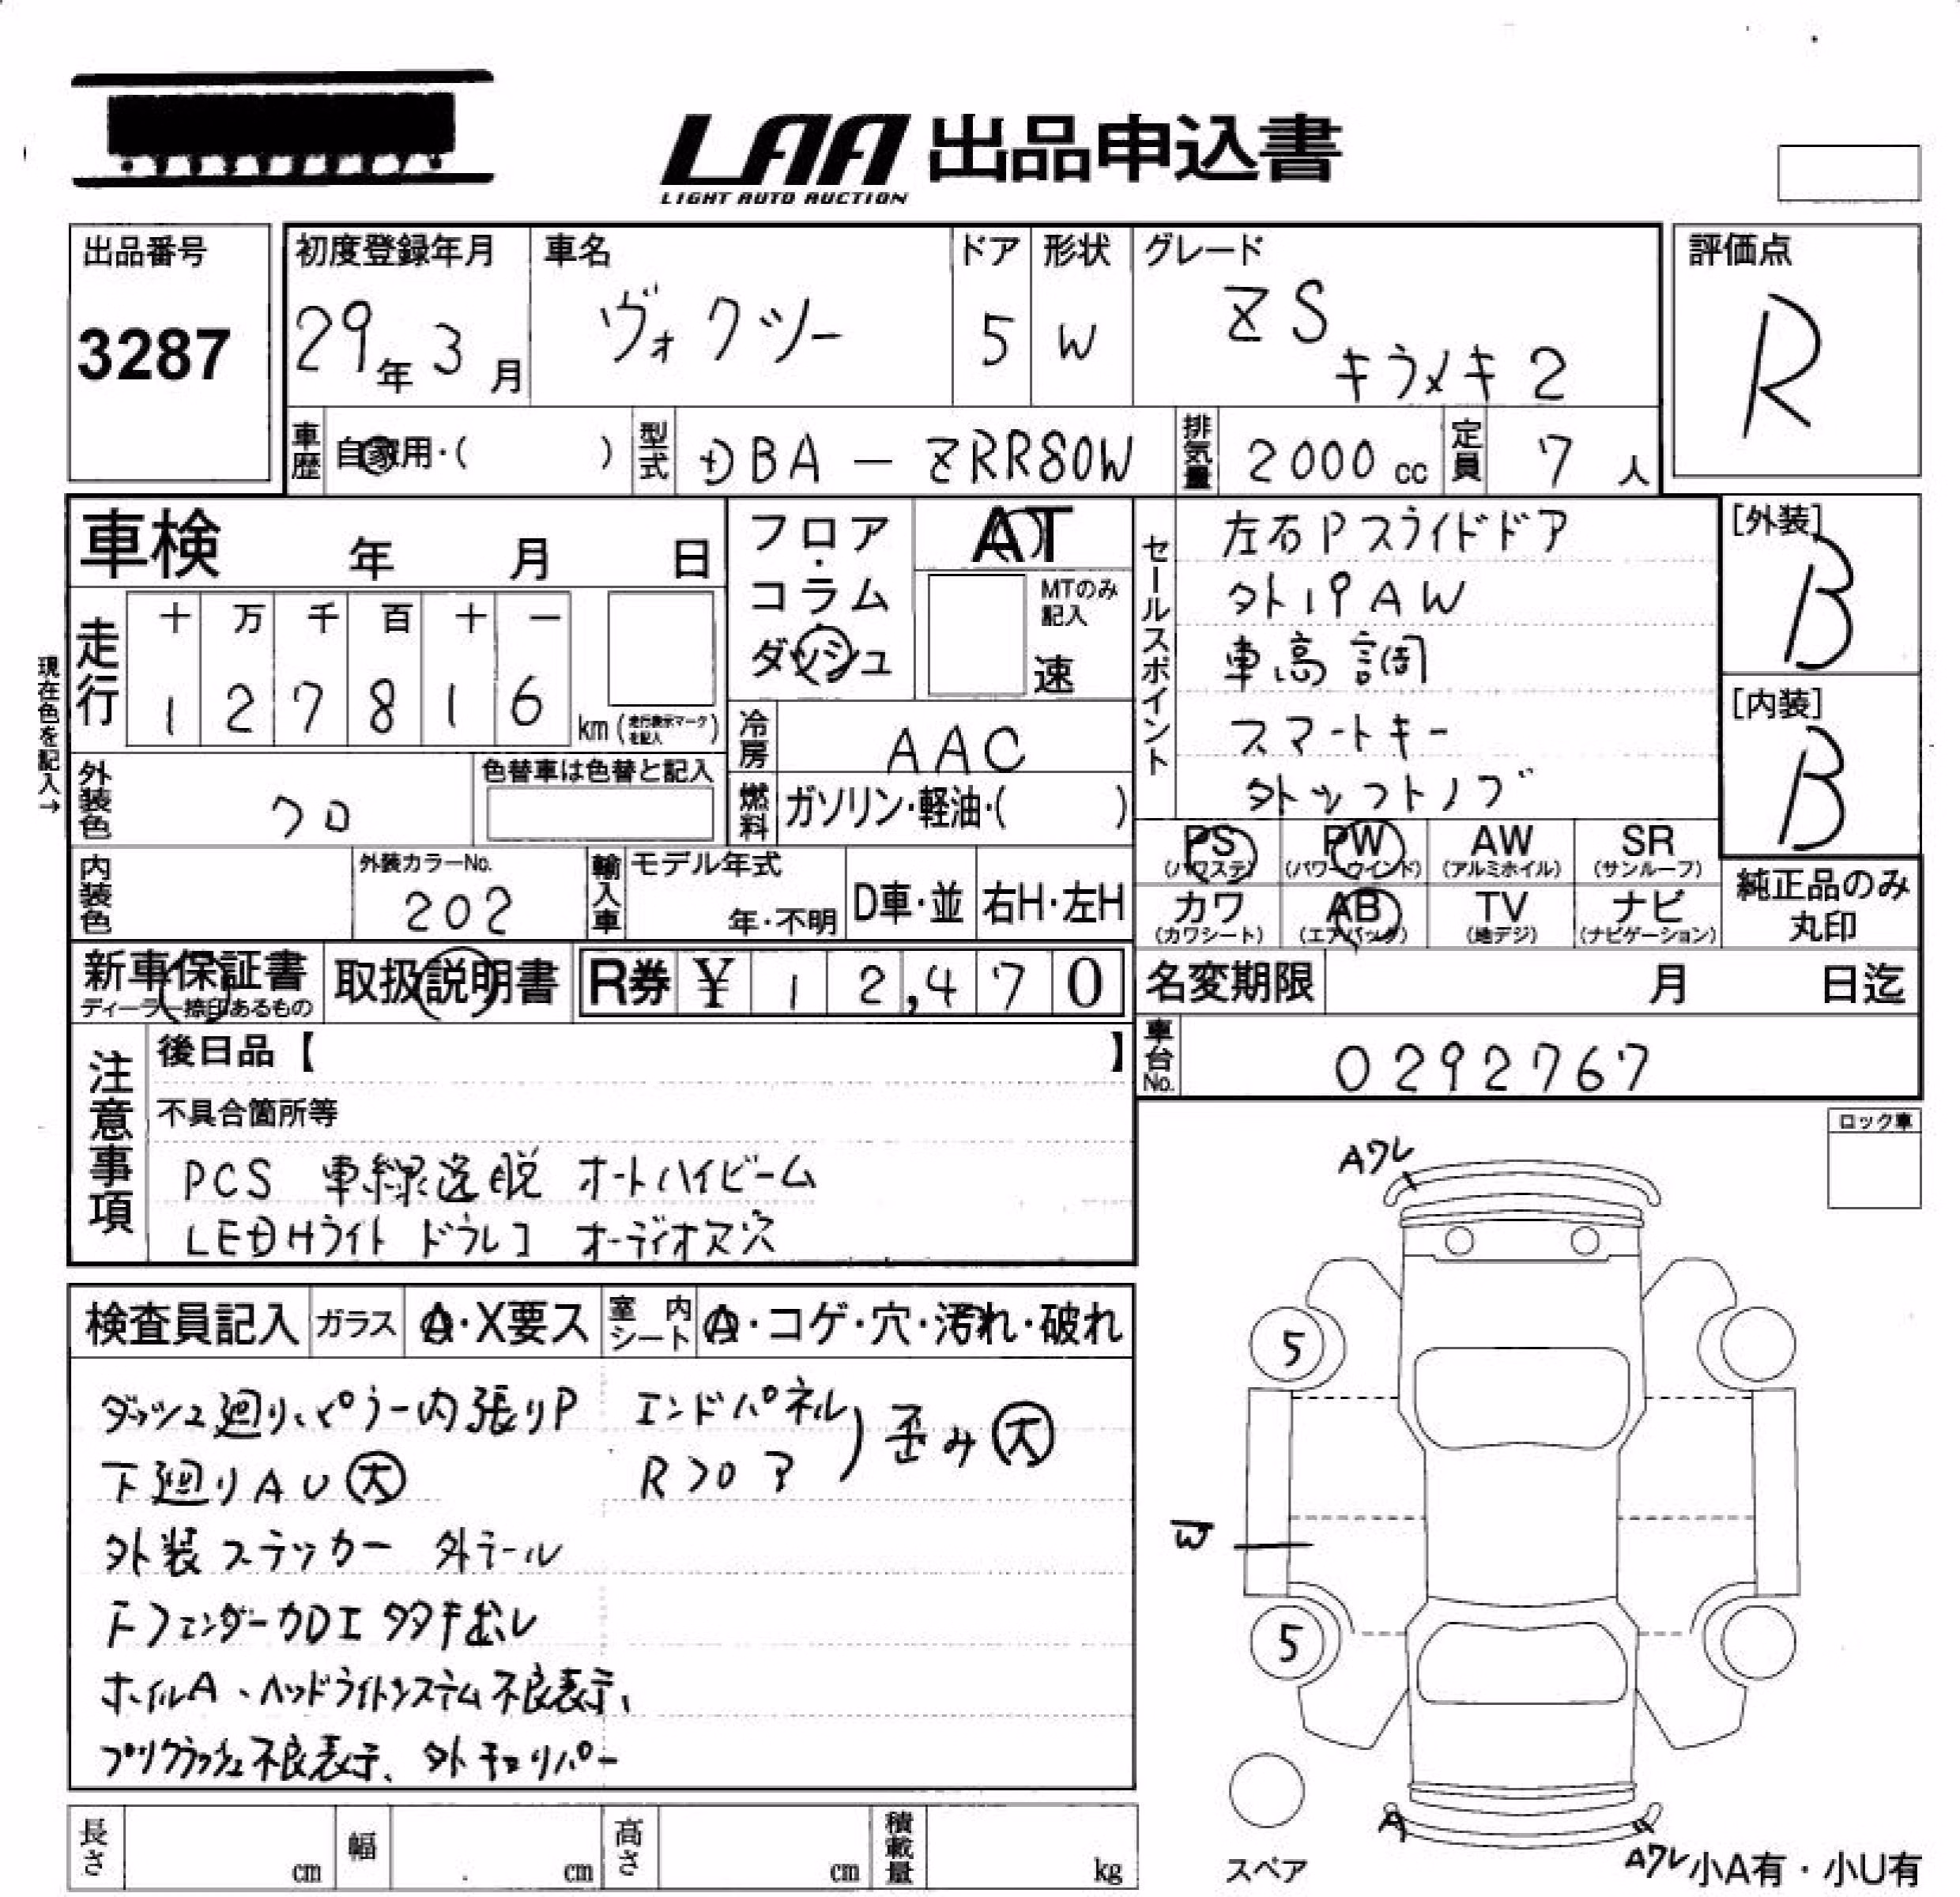 LAA 出品申込書
LIGHT AUTO AUCTION
出品番号
3287
初度登録年月
29年 3月
車名
ヴォクシー
ドア
5
形状
W
グレード
ZS
キラメキ2
評価点
R
車歴
自家用・( )
型式
DBA-ZRR80W
排気量
2000cc
定員
7人
車検 年 月 日
フロア・コラム
ダッシュ
AT
MTのみ記入
速
セールスポイント
左右Pスライドドア
外19AW
車高調
スマートキー
外シフトノブ
[外装]
B
[内装]
B
現在色を記入→
走行
十 万 千 百 十 一
1 2 7 8 1 6
km(走行表示マークを記入)
冷房
AAC
外装色
クロ
色替車は色替と記入
燃料
ガソリン・軽油・( )
PS
(パワステ)
PW
(パワーウインド)
AW
(アルミホイル)
SR
(サンルーフ)
カワ
(カワシート)
AB
(エアバック)
TV
(地デジ)
ナビ
(ナビゲーション)
純正品のみ
丸印
内装色
外装カラーNo.
202
輸入車
モデル年式
年・不明
D車・並
右H・左H
新車保証書
ディーラー捺印あるもの
取扱説明書
R券 ¥ 12,470
名変期限 月 日迄
車台No.
0292767
注意事項
後日品【 】
不具合箇所等
PCS 車線逸脱 オートハイビーム
LEDHライト ドラレコ オーディオレス
ロック車
検査員記入
ガラス
A・X要ス
室内シート
A・コゲ・穴・汚れ・破れ
ダッシュ廻り、ピラー内張りP
エンドパネル
Rフロア
歪み大
下廻りAU大
外装ステッカー 外テール
Fフェンダーカロエ タタキ出し
ホイルA、ヘッドライトシステム不良表示、
プリクラッシュ不良表示、外キャリパー
Aワレ
5
W
5
A
Aワレ
スペア
小A有・小U有
長さ
cm
幅
cm
高さ
cm
積載量
kg